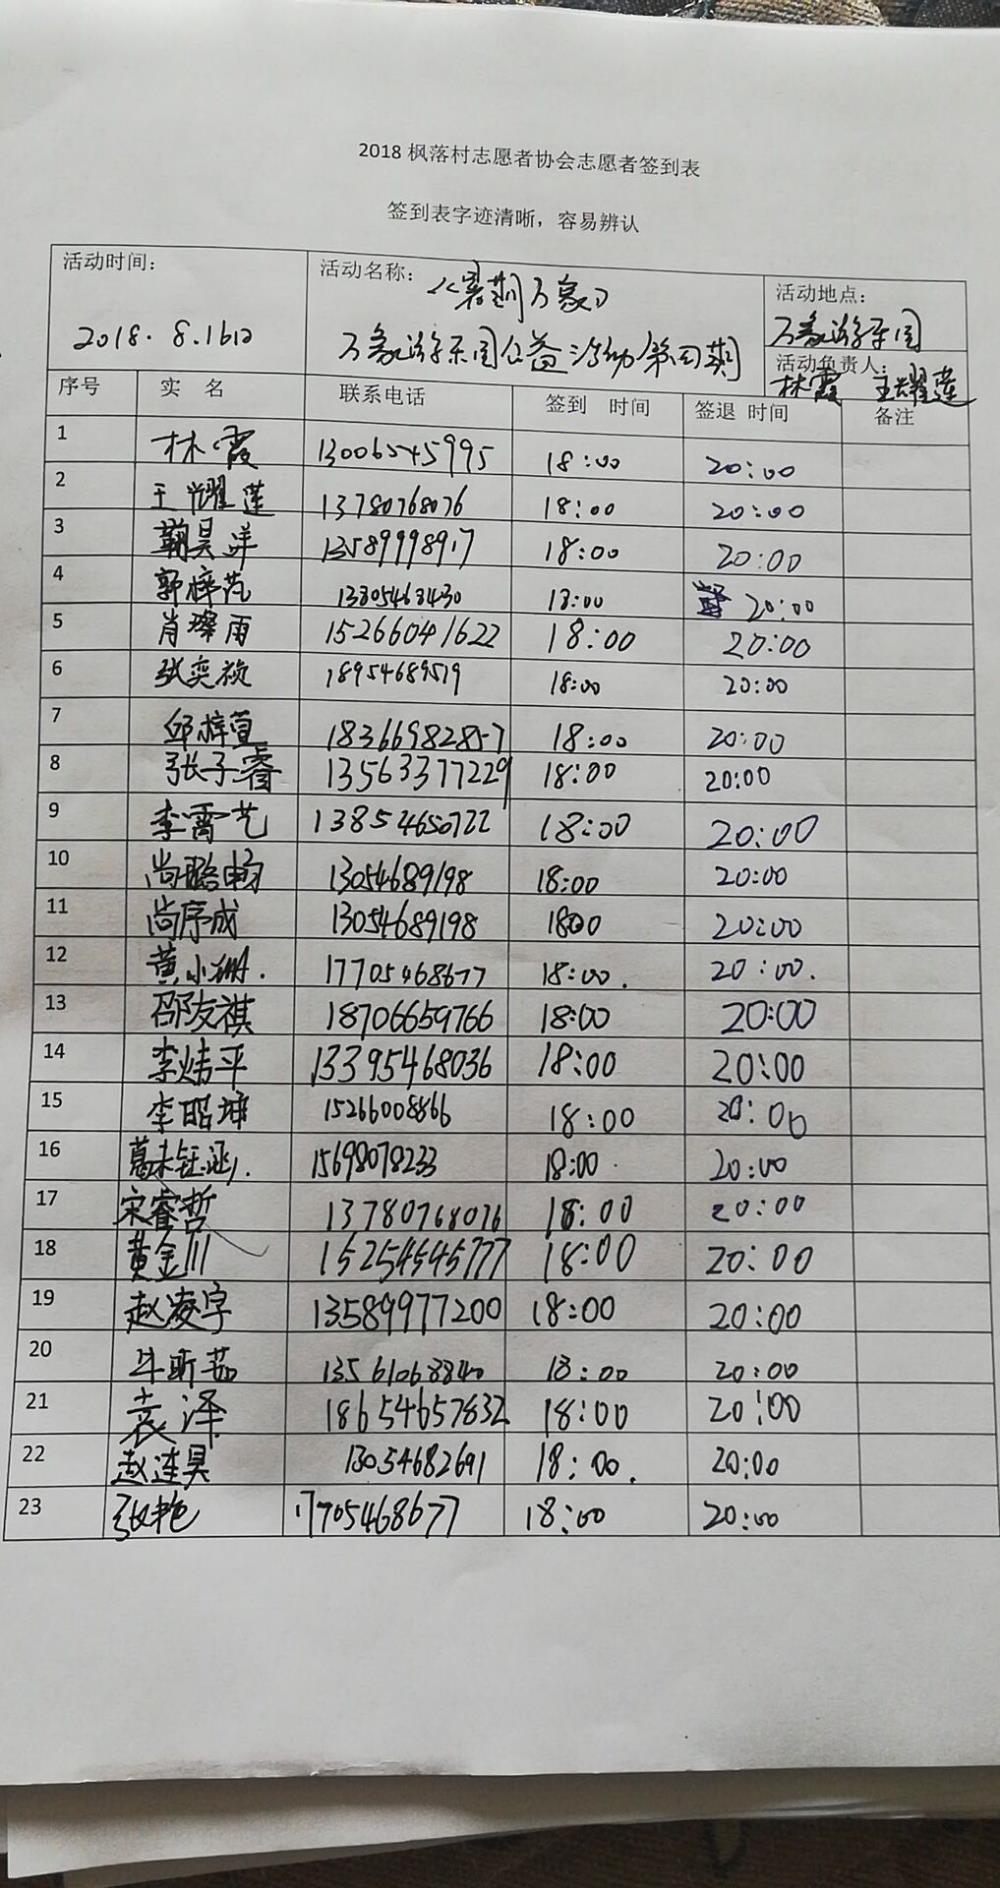 2018 枫落村志愿者协会志愿者签到表
签到表字迹清晰，容易辨认
活动时间： 活动名称：《暑期万象》 活动地点：
2018.8.16日 万象游乐园公益活动第四期 万象游乐园
活动负责人： 林霞 王耀莲
序号 实 名 联系电话 签到 时间 签退 时间 备注
1 林霞 13006545995 18:00 20:00
2 王耀莲 13780768076 18:00 20:00
3 鞠昊洋 13589998917 18:00 20:00
4 郭梓苑 13305463430 18:00 20:00
5 肖璨雨 15266041622 18:00 20:00
6 张奕祯 18954689519 18:00 20:00
7 邱梓萱 18366982857 18:00 20:00
8 张子睿 13563377229 18:00 20:00
9 李霄艺 13854650722 18:00 20:00
10 尚畅 13054689198 18:00 20:00
11 尚序成 13054689198 18:00 20:00
12 黄小珊. 17705468677 18:00. 20:00.
13 邵友祺 18706659766 18:00 20:00
14 李炜平 13395468036 18:00 20:00
15 李昭坤 15266008866 18:00 20:00
16 葛未钰涵 15698078233 18:00 20:00
17 宋睿哲 13780768076 18:00 20:00
18 黄金川 15254545777 18:00 20:00
19 赵凌宇 13589977200 18:00 20:00
20 牛昕茹 13561068840 18:00 20:00
21 袁泽 18654657832 18:00 20:00
22 赵连昊 13054682691 18:00. 20:00
23 张艳 17705468677 18:00 20:00